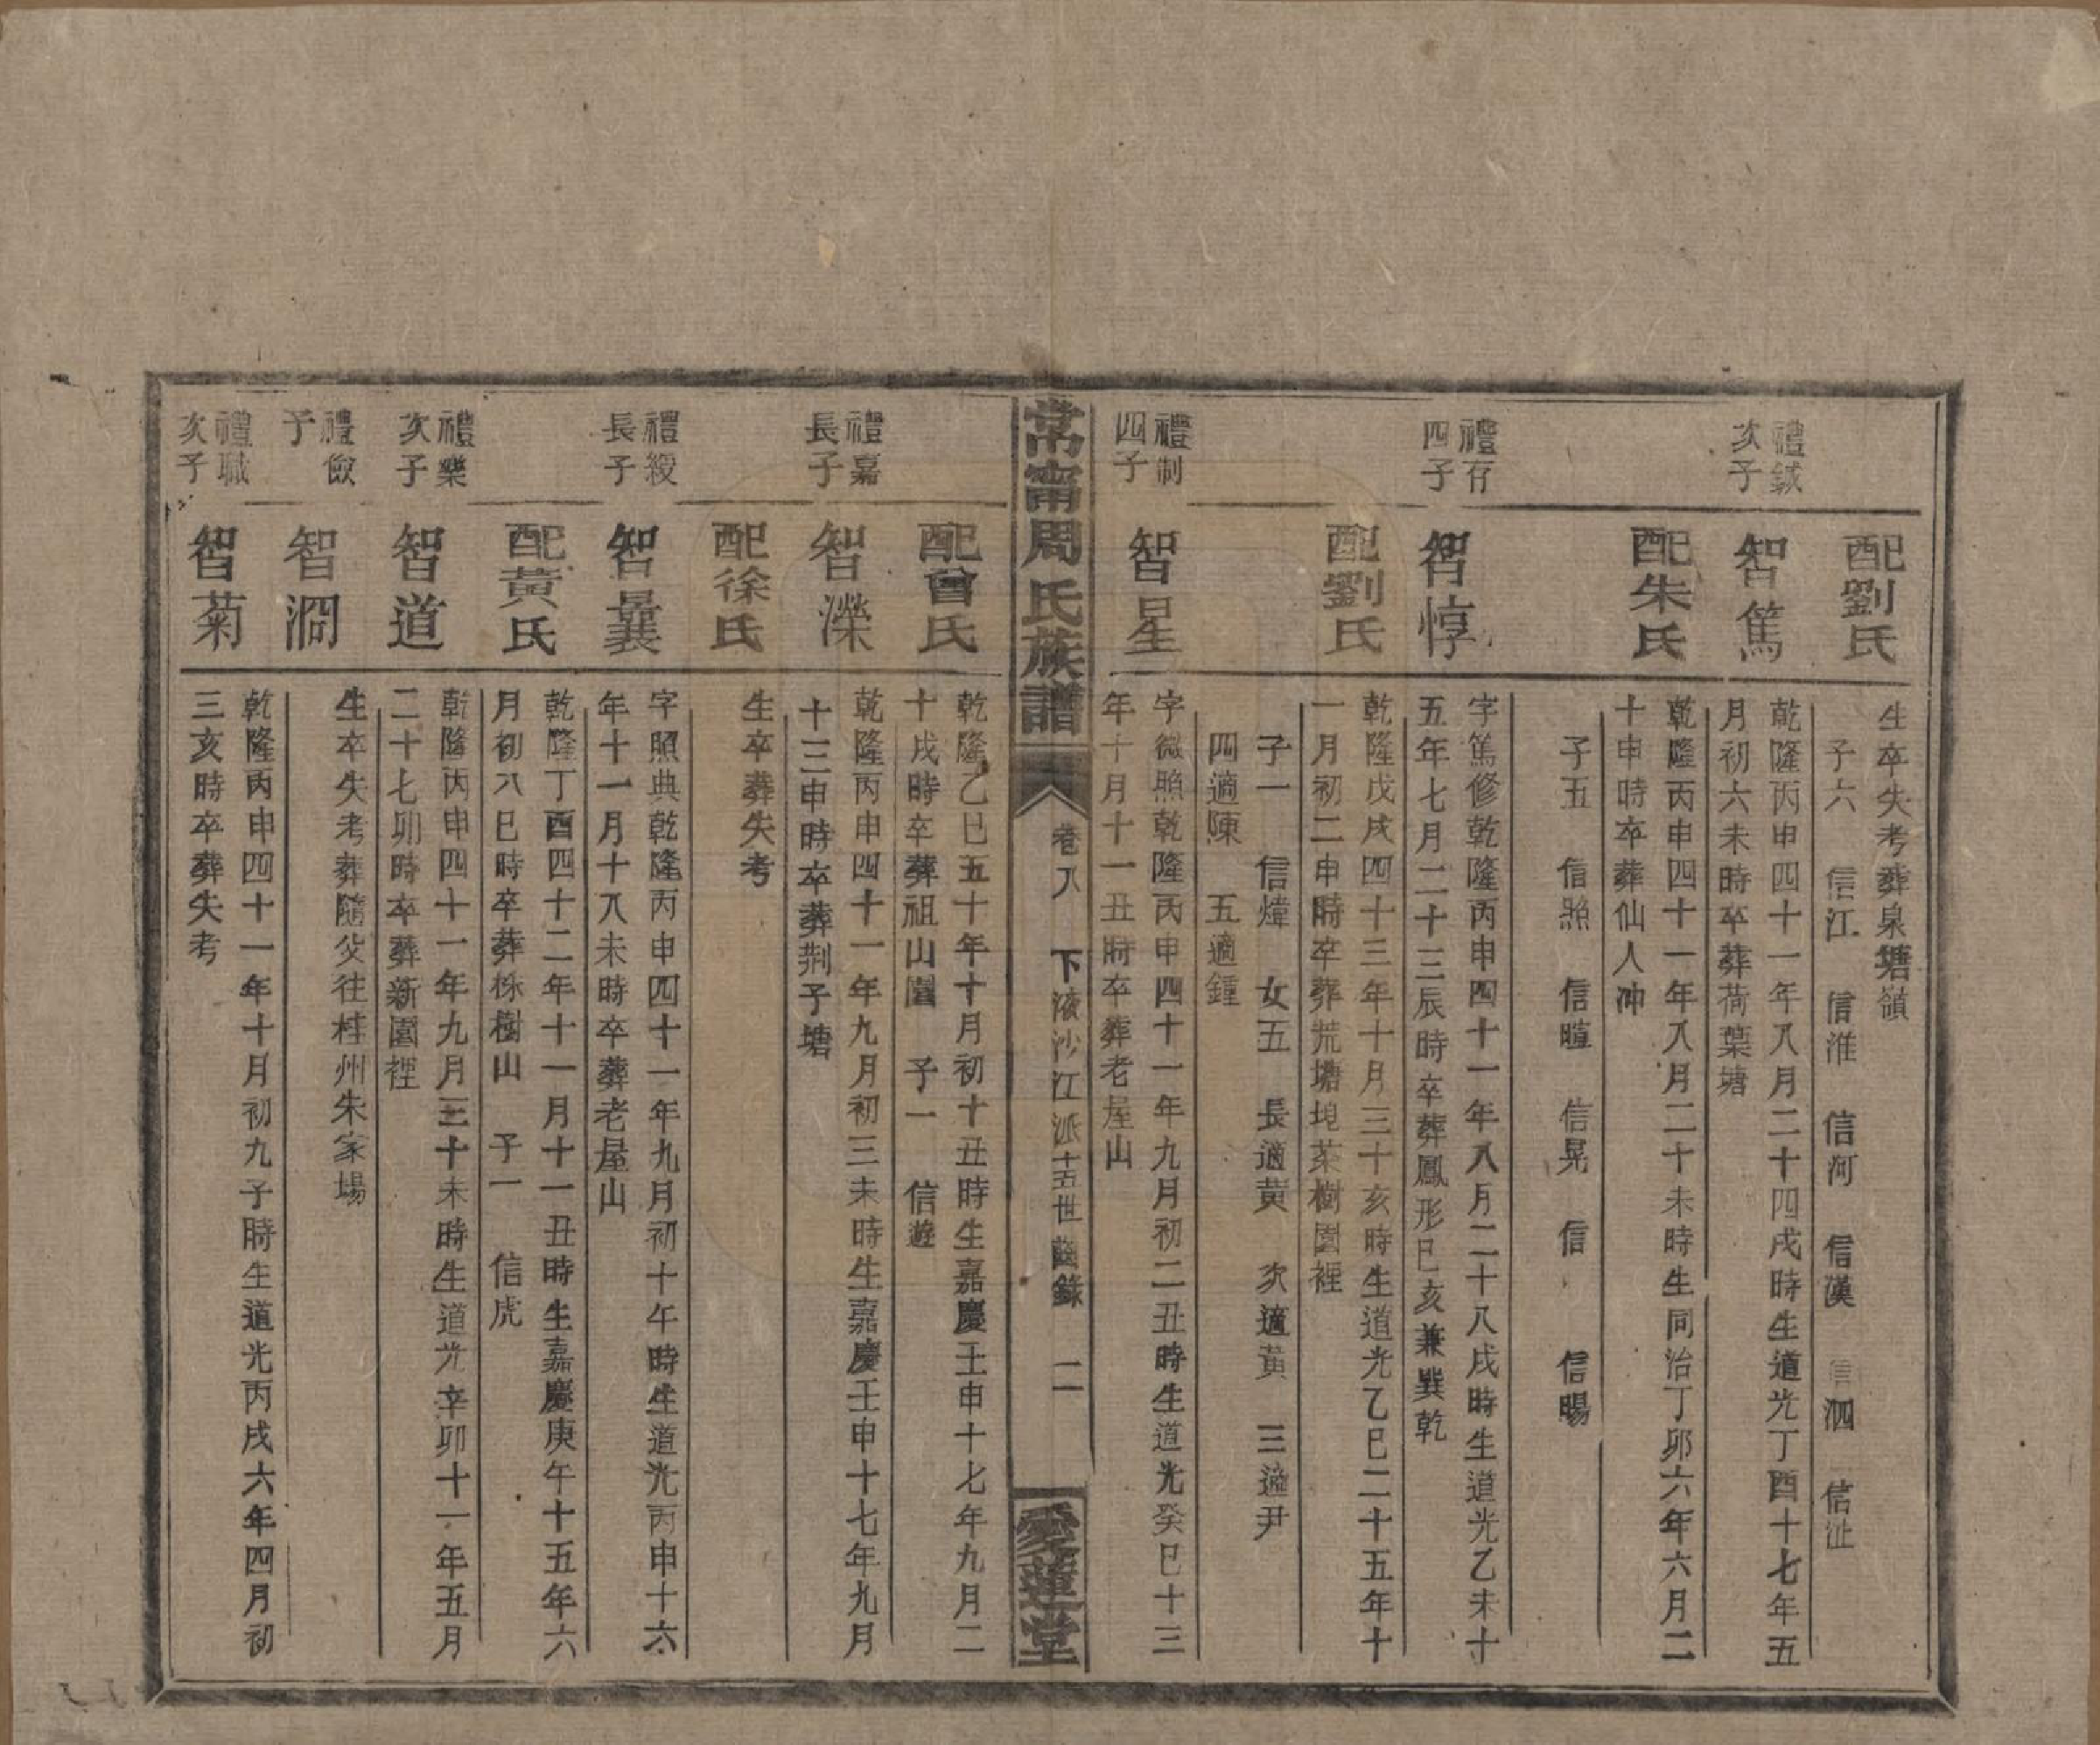 配劉氏
生卒失考葬泉塘嶺
子六 信江 信淮 信河 信漢 信泗 信沚
禮鉞
次子
智篤
乾隆丙申四十一年八月二十四戌時生道光丁酉十七年五
月初六未時卒葬荷葉塘
配朱氏
乾隆丙申四十一年八月二十未時生同治丁卯六年六月二
十申時卒葬仙人冲
子五 信照 信暄 信晃 信 信暘
禮存
四子
智惇
字篤修乾隆丙申四十一年八月二十八戌時生道光乙未十
五年七月二十三辰時卒葬鳳形巳亥兼巽乾
配劉氏
乾隆戊戌四十三年十月三十亥時生道光乙巳二十五年十
一月初二申時卒葬荒塘塊茶樹園裡
子一 信煒 女五 長適黄 次適黃 三適尹
四適陳 五適鍾
禮制
四子
智星
字微照乾隆丙申四十一年九月初二丑時生道光癸巳十三
年十月十一丑時卒葬老屋山
常甯周氏族譜
卷八 下液沙江派十五世齒錄 二
愛蓮堂
配曾氏
乾隆乙巳五十年十月初十丑時生嘉慶壬申十七年九月二
十戌時卒葬祖山園 子一 信遊
禮嘉
長子
智濼
乾隆丙申四十一年九月初三未時生嘉慶壬申十七年九月
十三申時卒葬荆子塘
配徐氏
生卒葬失考
禮綬
長子
智曩
字照典乾隆丙申四十一年九月初十午時生道光丙申十六
年十一月十八未時卒葬老屋山
配黃氏
乾隆丁酉四十二年十一月十一丑時生嘉慶庚午十五年六
月初八巳時卒葬株樹山 子一 信虎
禮樂
次子
智道
乾隆丙申四十一年九月三十未時生道光辛卯十一年五月
二十七卯時卒葬新園裡
禮儉
子
智潤
生卒失考葬隨父往桂州朱家場
禮職
次子
智菊
乾隆丙申四十一年十月初九子時生道光丙戌六年四月初
三亥時卒葬失考